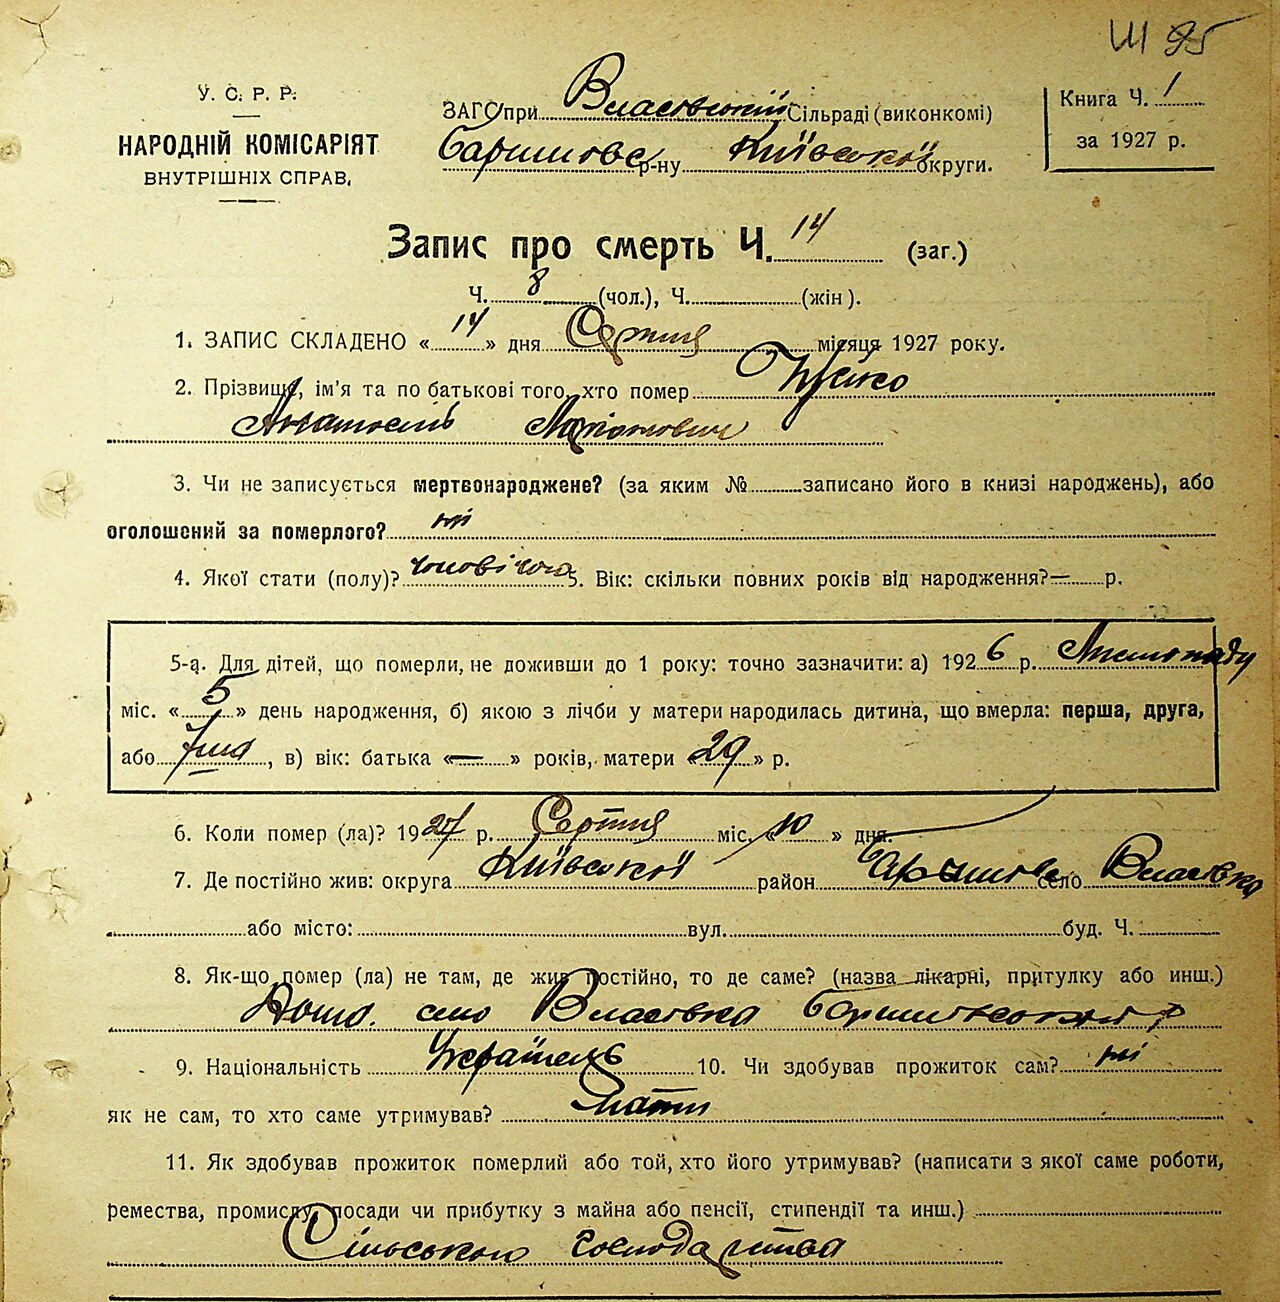 Ш 95
У. С. Р. Р.
НАРОДНІЙ КОМІСАРІЯТ
ВНУТРІШНІХ СПРАВ,
ЗАГС при Власівській Сільраді (виконкомі)
Баришівс р-ну Київської округи.
Книга Ч. 1
за 1927 р.
Запис про смерть Ч. 14 (заг.)
Ч. 8 (чол.), Ч. (жін).
1. ЗАПИС СКЛАДЕНО «14» дня Серпня місяця 1927 року.
2. Прізвище, ім'я та по батькові того, хто помер
Анатолій Маріонович
3. Чи не записується мертвонароджене? (за яким № записано його в книзі народжень), або
оголошений за померлого? ні
4. Якої стати (полу)? чоловічої 5. Вік: скільки повних років від народження? — р.
5-а. Для дітей, що померли, не доживши до 1 року: точно зазначити: а) 1926 р. Листопаду
міс. «5» день народження, б) якою з лічби у матери народилась дитина, що вмерла: перша, друга,
або, в) вік: батька «—» років, матери «29» р.
6. Коли помер (ла)? 1927 р. Серпня міс. «10» дня.
7. Де постійно жив: округа Київської район Баришівс село Власівка
або місто: вул. буд. Ч.
8. Як-що помер (ла) не там, де жив постійно, то де саме? (назва лікарні, притулку або инш.)
Дома. село Власівка Баришівського р
9. Національність Українець 10. Чи здобував прожиток сам? ні
як не сам, то хто саме утримував? мати
11. Як здобував прожиток померлий або той, хто його утримував? (написати з якої саме роботи,
ремества, промислу, посади чи прибутку з майна або пенсії, стипендії та инш.)
Сільського господарства